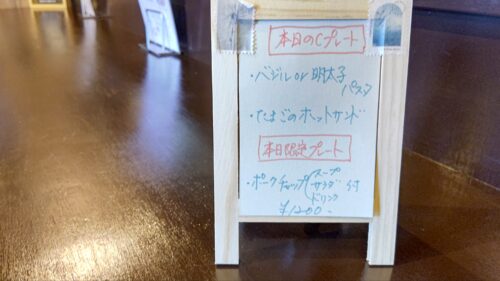 本日のCプレート
・バジル or 明太子
パスタ
・たまごのホットサンド
本日限定プレート
・ポークチャップ
スープ
サラダ 付
ドリンク
¥1200-